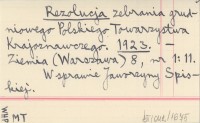 Rezolucja zebrania grud-
niowego Polskiego Towarzystwa
Krajoznawczego. 1923. —
Ziemia (Warszawa) 8, nr 1: 11.
W sprawie Jaworzyny Spis-
kiej.
MT